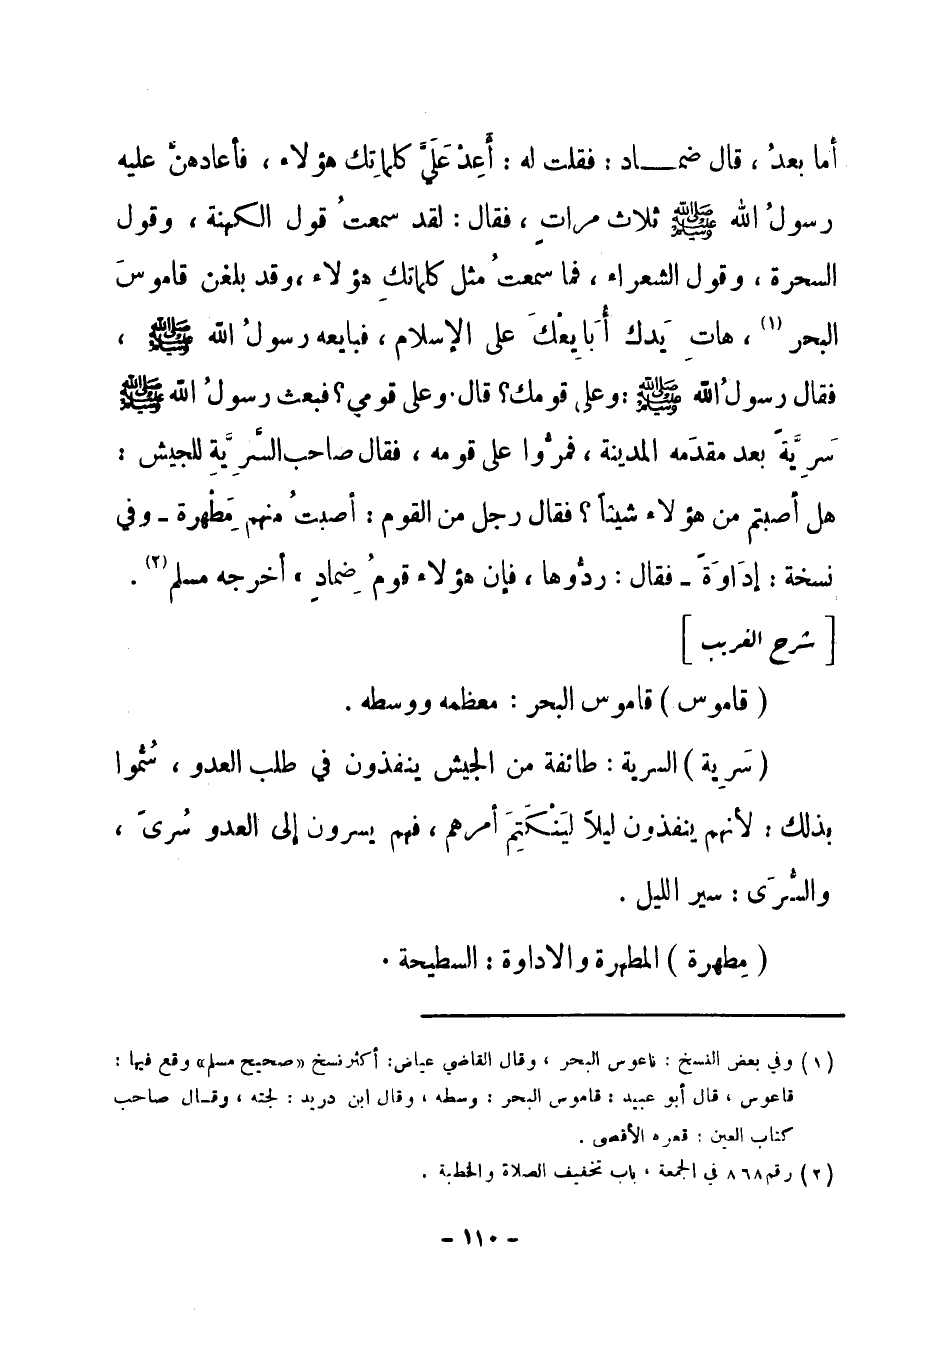 أما بعدُ ، قال ضمـــاد : فقلت له : أَعِدْ عَلَيَّ كلماتِك هؤلاء ، فأعادهنَّ عليه
رسولُ الله ﷺ ثلاث مراتٍ ، فقال : لقد سمعتُ قول الكهنة ، وقول
السحرة ، وقول الشعراء ، فما سمعتُ مثل كلماتكِ هؤلاء ،وقد بلغن قاموسَ
البحر (١) ، هاتِ يَدك أُبَايِعْكَ على الإسلام ، فبايعه رسولُ الله ﷺ ،
فقال رسولُ الله ﷺ : وعلى قومك؟ قال·وعلى قومي؟ فبعث رسولُ الله ﷺ
سَرِيَّةً بعد مقدَمه المدينة ، فمرُّوا على قومه ، فقال صاحب السَّرِيَّةِ للجيش :
هل أصبتم من هؤلاء شيئاً ؟ فقال رجل من القوم : أصبتُ منهم مِطْهرة ـ وفي
نسخة : إدَاوَةً ـ فقال : ردُّوها ، فإن هؤلاء قومُ ضِمادٍ ، أخرجه مسلم (٢) .
[ شرح الغريب ]
( قاموس ) قاموس البحر : معظمه ووسطه .
( سَرِية ) السرية : طائفة من الجيش ينفذون في طلب العدو ، سُمُّوا
بذلك : لأنهم ينفذون ليلاً لِيَنْكَتِمَ أمرهم ، فهم يسرون إلى العدو سُرىً ،
والسُّرَى : سير الليل .
( مِطهرة ) المطهرة والاداوة : السطيحة ·
(١) وفي بعض النسخ : ناعوس البحر ، وقال القاضي عياض: أكثر نسخ «صحيح مسلم» وقع فيها :
قاعوس ، قال أبو عبيد : قاموس البحر : وسطه ، وقال ابن دريد : لجته ، وقـال صاحب
كتاب العين : قعره الأقصى .
(٢) رقم ٨٦٨ في الجمعة ، باب تخفيف الصلاة والخطبة .
- ١١٠ -